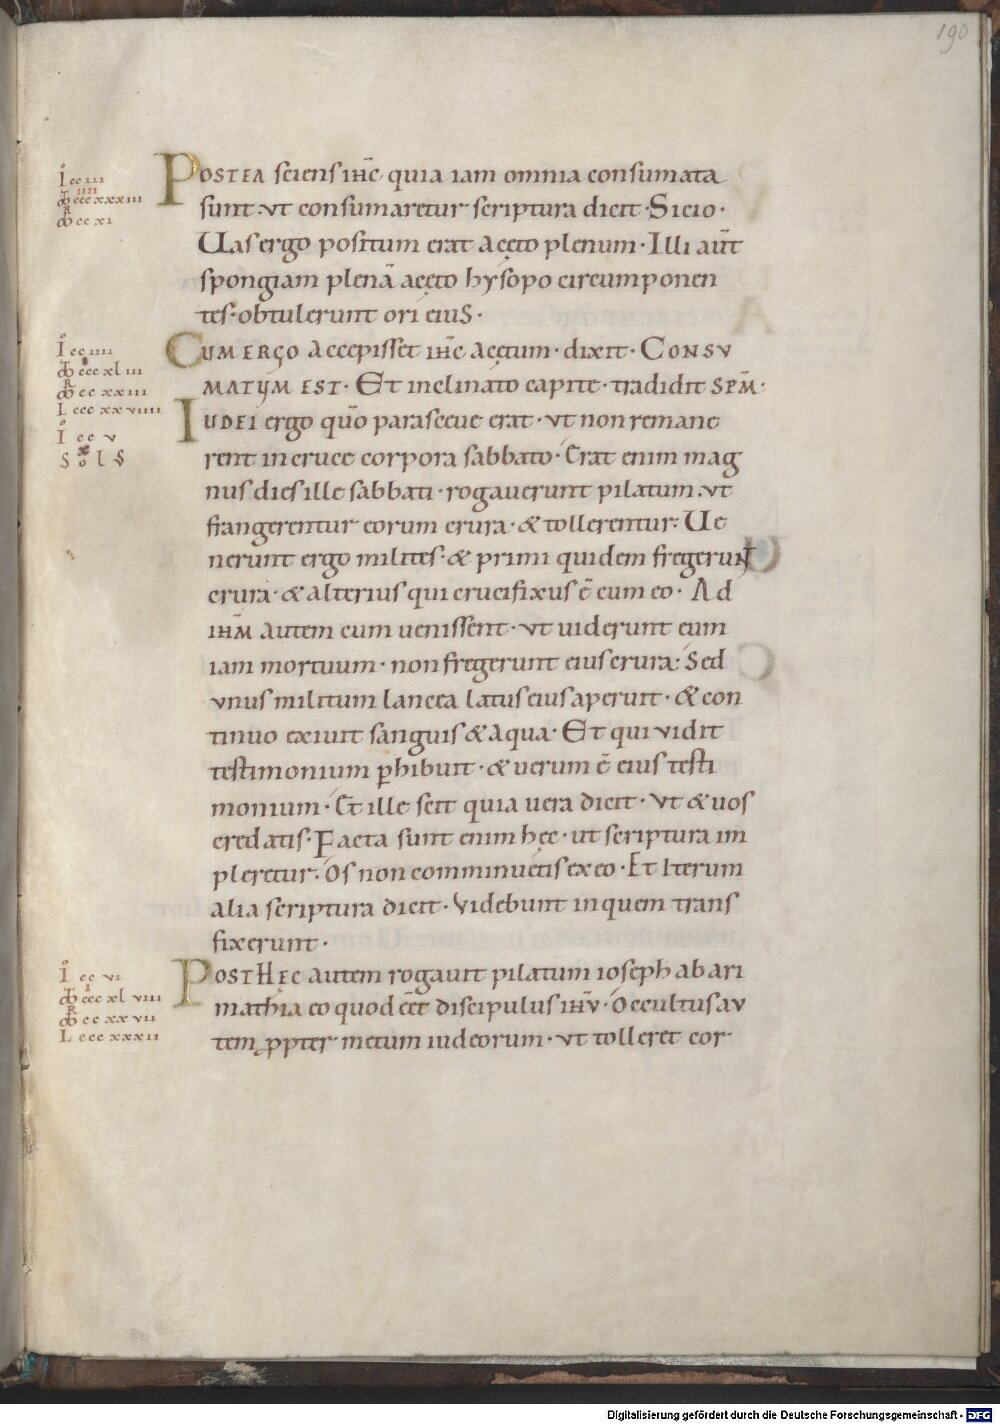 190
POSTEA sciens ih̄c quia iam omnia consumata
sunt· ut consumaretur scriptura dicit· Sicio·
Uas ergo positum erat aceto plenum· Illi aūt
spongiam plenā aceto hysopo circumponen
tes· obtulerunt ori eius·
CUM ERGO accepisset ih̄c acetum· dixit· CONSU
MATUM EST· Et inclinato capite· tradidit SPM̄·
IUDEI ergo quō parasceue erat· ut non remane
rent in cruce corpora sabbato· Erat enim mag
nus dies ille sabbati· rogauerunt pilatum· ut
frangerentur eorum crura· & tollerentur· Ue
nerunt ergo milites· & primi quidem fregerunt
crura· & alterius qui crucifixus ē cum eo· Ad
ih̄m autem cum uenissent· ut uiderunt eum
iam mortuum· non fregerunt eius crura· Sed
unus militum lancea latus eius aperuit· & con
tinuo exiuit sanguis & aqua· Et qui vidit
testimonium phibuit· & uerum ē eius testi
monium· Et ille scit quia uera dicit· ut & uos
credatis· Facta sunt enim hęc· ut scriptura im
pleretur· Os non comminuetis ex eo· Et Iterum
alia scriptura dicit· Videbunt in quem trans
fixerunt·
POST HĘC autem rogauit pilatum ioseph ab ari
mathia eo quod eēt discipulus ih̄u· Occultus au
tem ppter metum iudeorum· ut tolleret cor
I cc iii
ccc xxxiii
cc xi
I cc iiii
ccc xl iii
cc xxiii
L ccc xx viiii
I cc v
S o l S
I cc vi
ccc xl viii
cc xx vii
L ccc xxxii
Digitalisierung gefördert durch die Deutsche Forschungsgemeinschaft - DFG